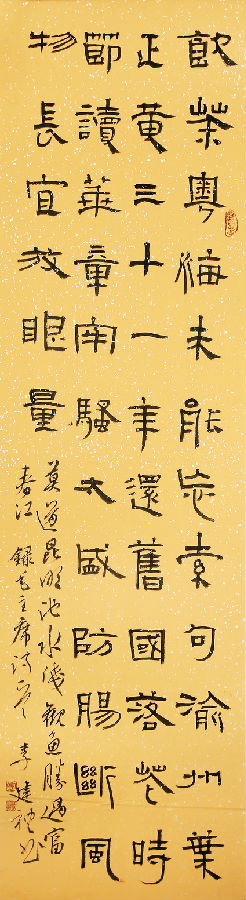 飲茶粵海未能忘索句渝州葉
正黄三十一年還舊國落花時
節讀華章牢騷太盛防腸斷風
物長宜放眼量
莫道昆明池水淺觀魚勝過富
春江 錄毛主席詩 李建